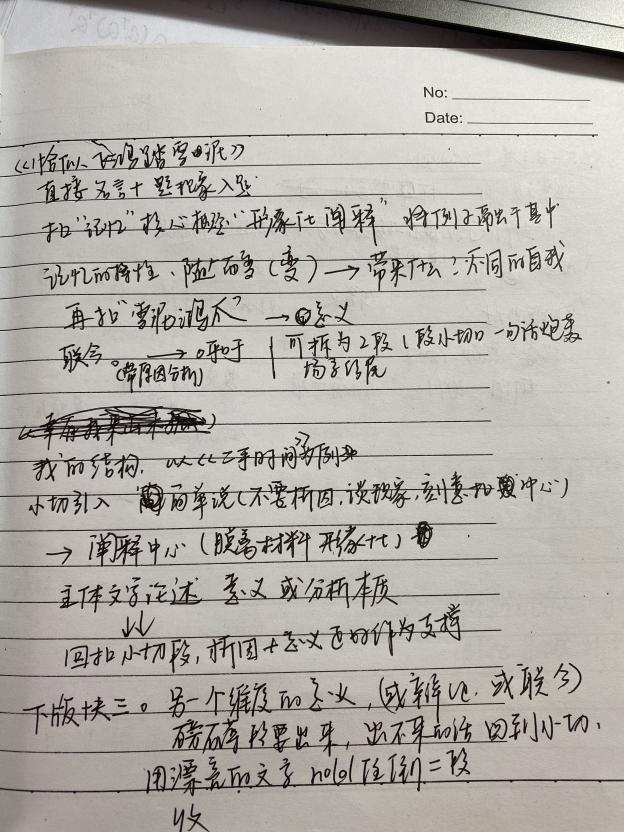 No:
Date:
《恰似飞鸿踏雪泥》
直接名言+题现象入题
扣"记忆"核心概念"形象化阐释" 将例子嵌出于其中
记忆的特性、随 而变(变)→带来什么?不同的自我
再扣"雪泥鸿爪"→意义
联今。→ 可拆为2段(段小切口 一句话炮轰
(带原因分析)
我的结构,以《二手时间》为例
小切引入 简单说(不要析因,谈现象,刻意扣 中心)
→ 阐释中心(脱离材料 形象化)
主体文字论述 意义 或分析本质
回扣小切段,析因+意义 作为支撑
下版块三。另一个维度的意义,(或辩论、或联今)
磅礴 要出来,出不来的话 回到小切,
用漂亮的文字 hold住倒二段
收